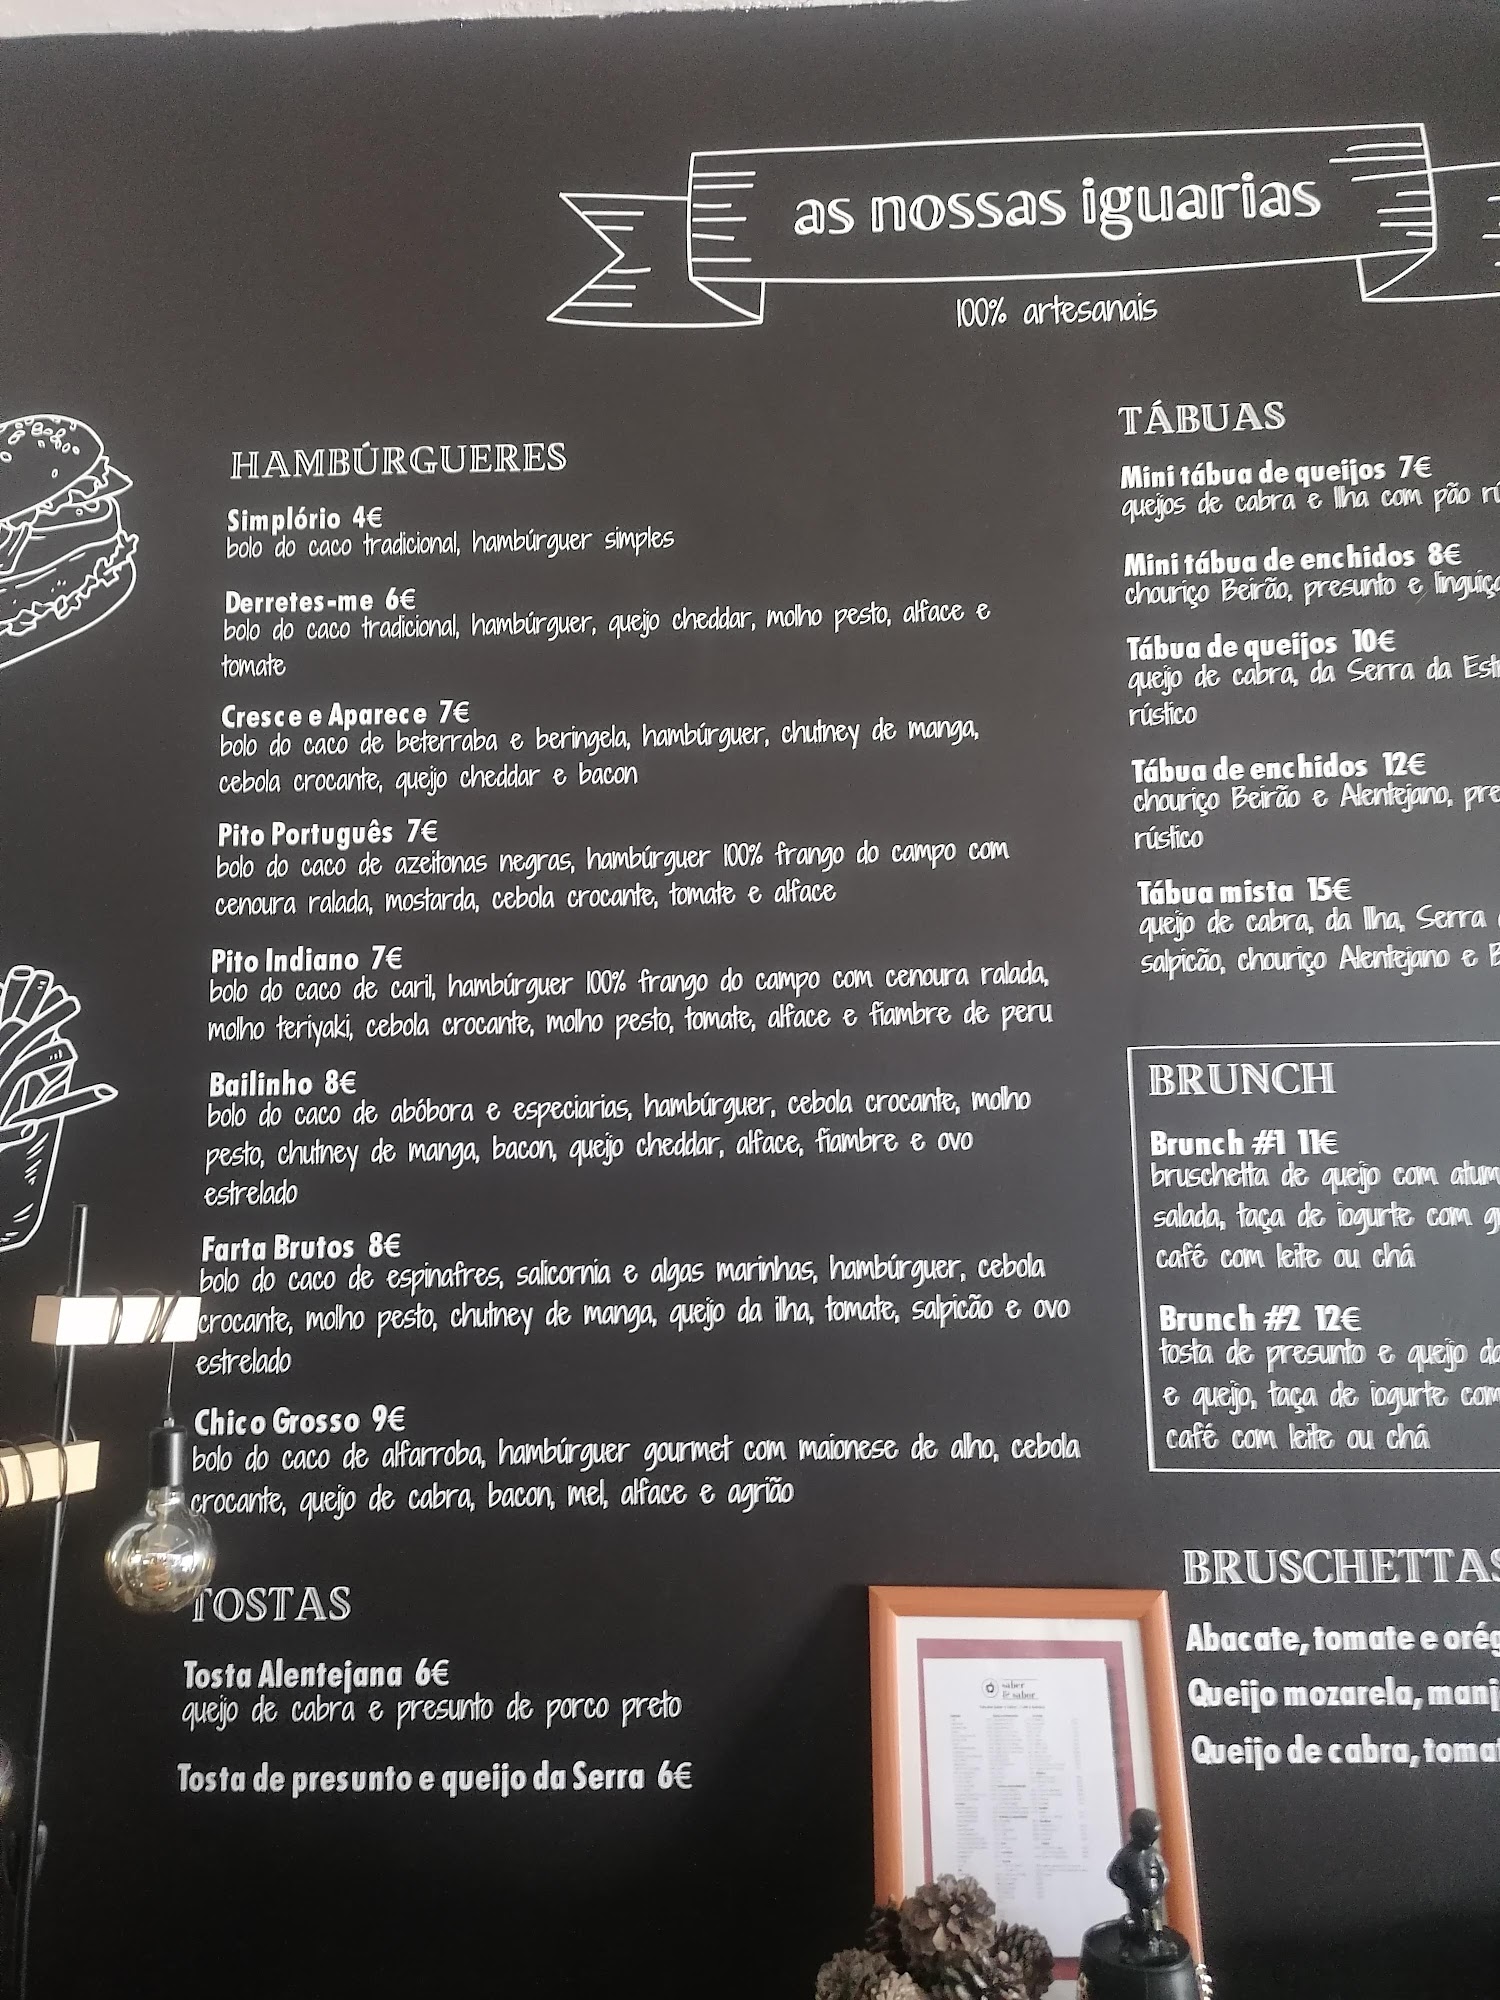 as nossas iguarias
100% artesanais
HAMBÚRGUERES
Simplório 4€
bolo do caco tradicional, hambúrguer simples
Derretes-me 6€
bolo do caco tradicional, hambúrguer, queijo cheddar, molho pesto, alface e
tomate
Cresce e Aparece 7€
bolo do caco de beterraba e beringela, hambúrguer, chutney de manga,
cebola crocante, queijo cheddar e bacon
Pito Português 7€
bolo do caco de azeitonas negras, hambúrguer 100% frango do campo com
cenoura ralada, mostarda, cebola crocante, tomate e alface
Pito Indiano 7€
bolo do caco de caril, hambúrguer 100% frango do campo com cenoura ralada,
molho teriyaki, cebola crocante, molho pesto, tomate, alface e fiambre de peru
Bailinho 8€
bolo do caco de abóbora e especiarias, hambúrguer, cebola crocante, molho
pesto, chutney de manga, bacon, queijo cheddar, alface, fiambre e ovo
estrelado
Farta Brutos 8€
bolo do caco de espinafres, salicornia e algas marinhas, hambúrguer, cebola
crocante, molho pesto, chutney de manga, queijo da ilha, tomate, salpicão e ovo
estrelado
Chico Grosso 9€
bolo do caco de alfarroba, hambúrguer gourmet com maionese de alho, cebola
crocante, queijo de cabra, bacon, mel, alface e agrião
TOSTAS
Tosta Alentejana 6€
queijo de cabra e presunto de porco preto
Tosta de presunto e queijo da Serra 6€
TÁBUAS
Mini tábua de queijos 7€
queijos de cabra e Ilha com pão
Mini tábua de enchidos 8€
chouriço Beirão, presunto e linguiça
Tábua de queijos 10€
queijo de cabra, da Serra da
rústico
Tábua de enchidos 12€
chouriço Beirão e Alentejano,
rústico
Tábua mista 15€
queijo de cabra, da Ilha, Serra
salpicão, chouriço Alentejano e
BRUNCH
Brunch #1 11€
bruschetta de queijo com atum
salada, taça de iogurte com
café com leite ou chá
Brunch #2 12€
tosta de presunto e queijo
e queijo, taça de iogurte com
café com leite ou chá
BRUSCHETTAS
Abacate, tomate e
Queijo mozarela,
Queijo de cabra,
saber
& sabor